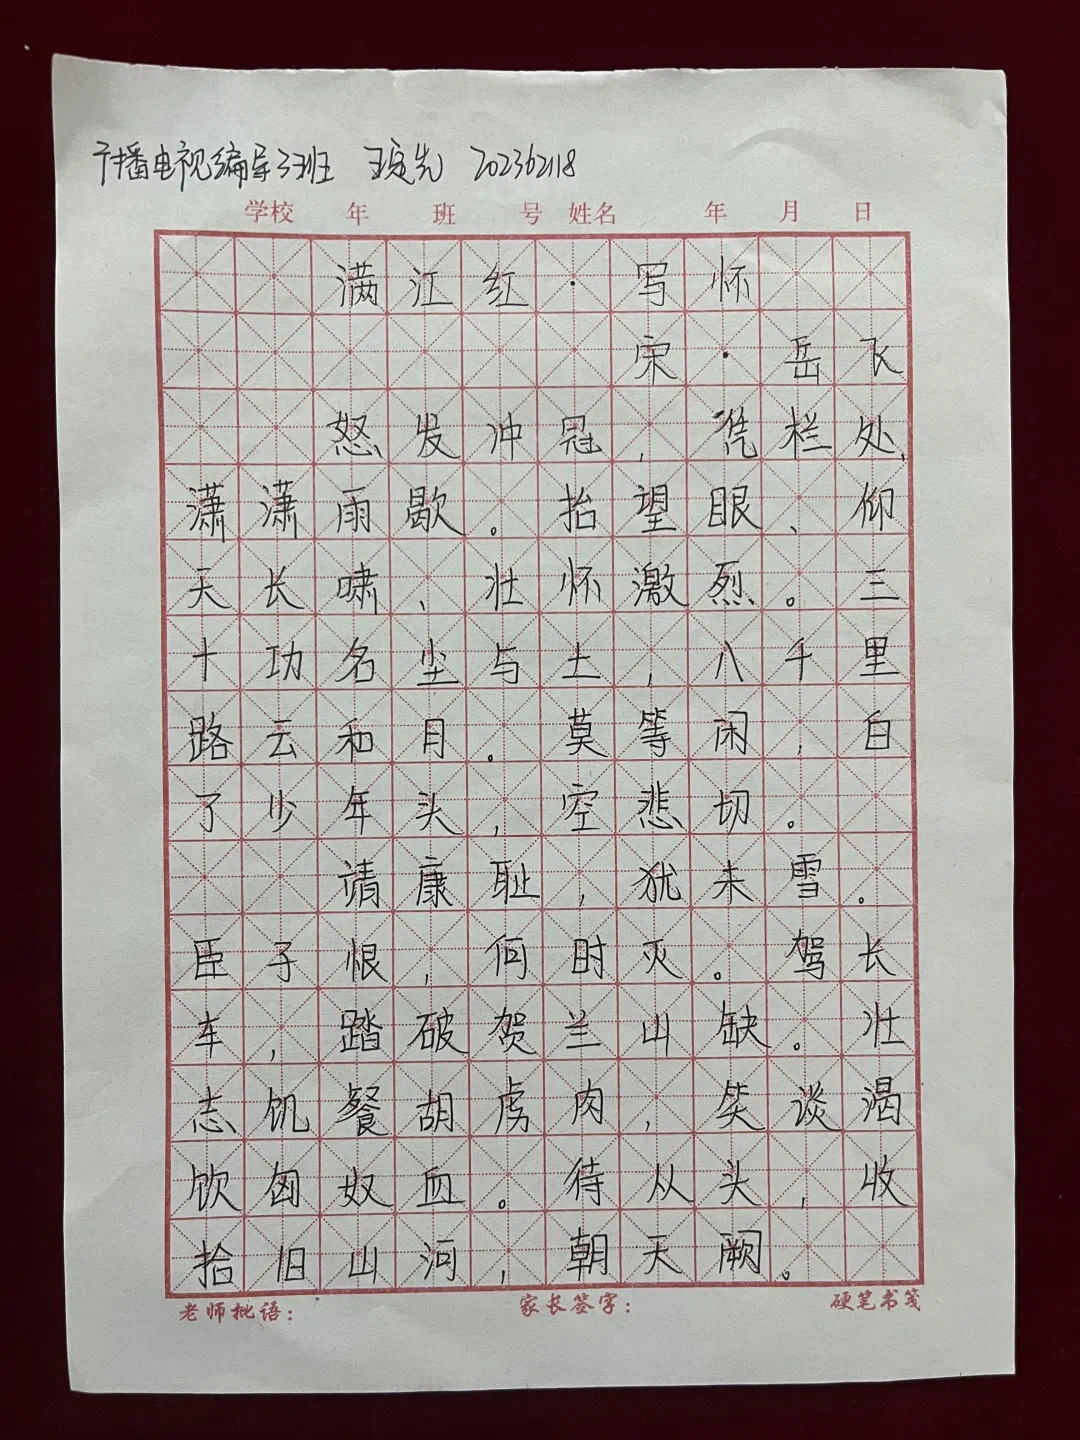 广播电视编导3班 王定先 202362118
学校 年 班 号 姓名 年 月 日
满江红·写怀
宋·岳飞
怒发冲冠，凭栏处、
潇潇雨歇。抬望眼、仰
天长啸、壮怀激烈。三
十功名尘与土，八千里
路云和月。莫等闲，白
了少年头，空悲切。
靖康耻，犹未雪。
臣子恨，何时灭。驾长
车，踏破贺兰山缺。壮
志饥餐胡虏肉，笑谈渴
饮匈奴血。待从头，收
拾旧山河，朝天阙。
老师批语： 家长签字： 硬笔书笺